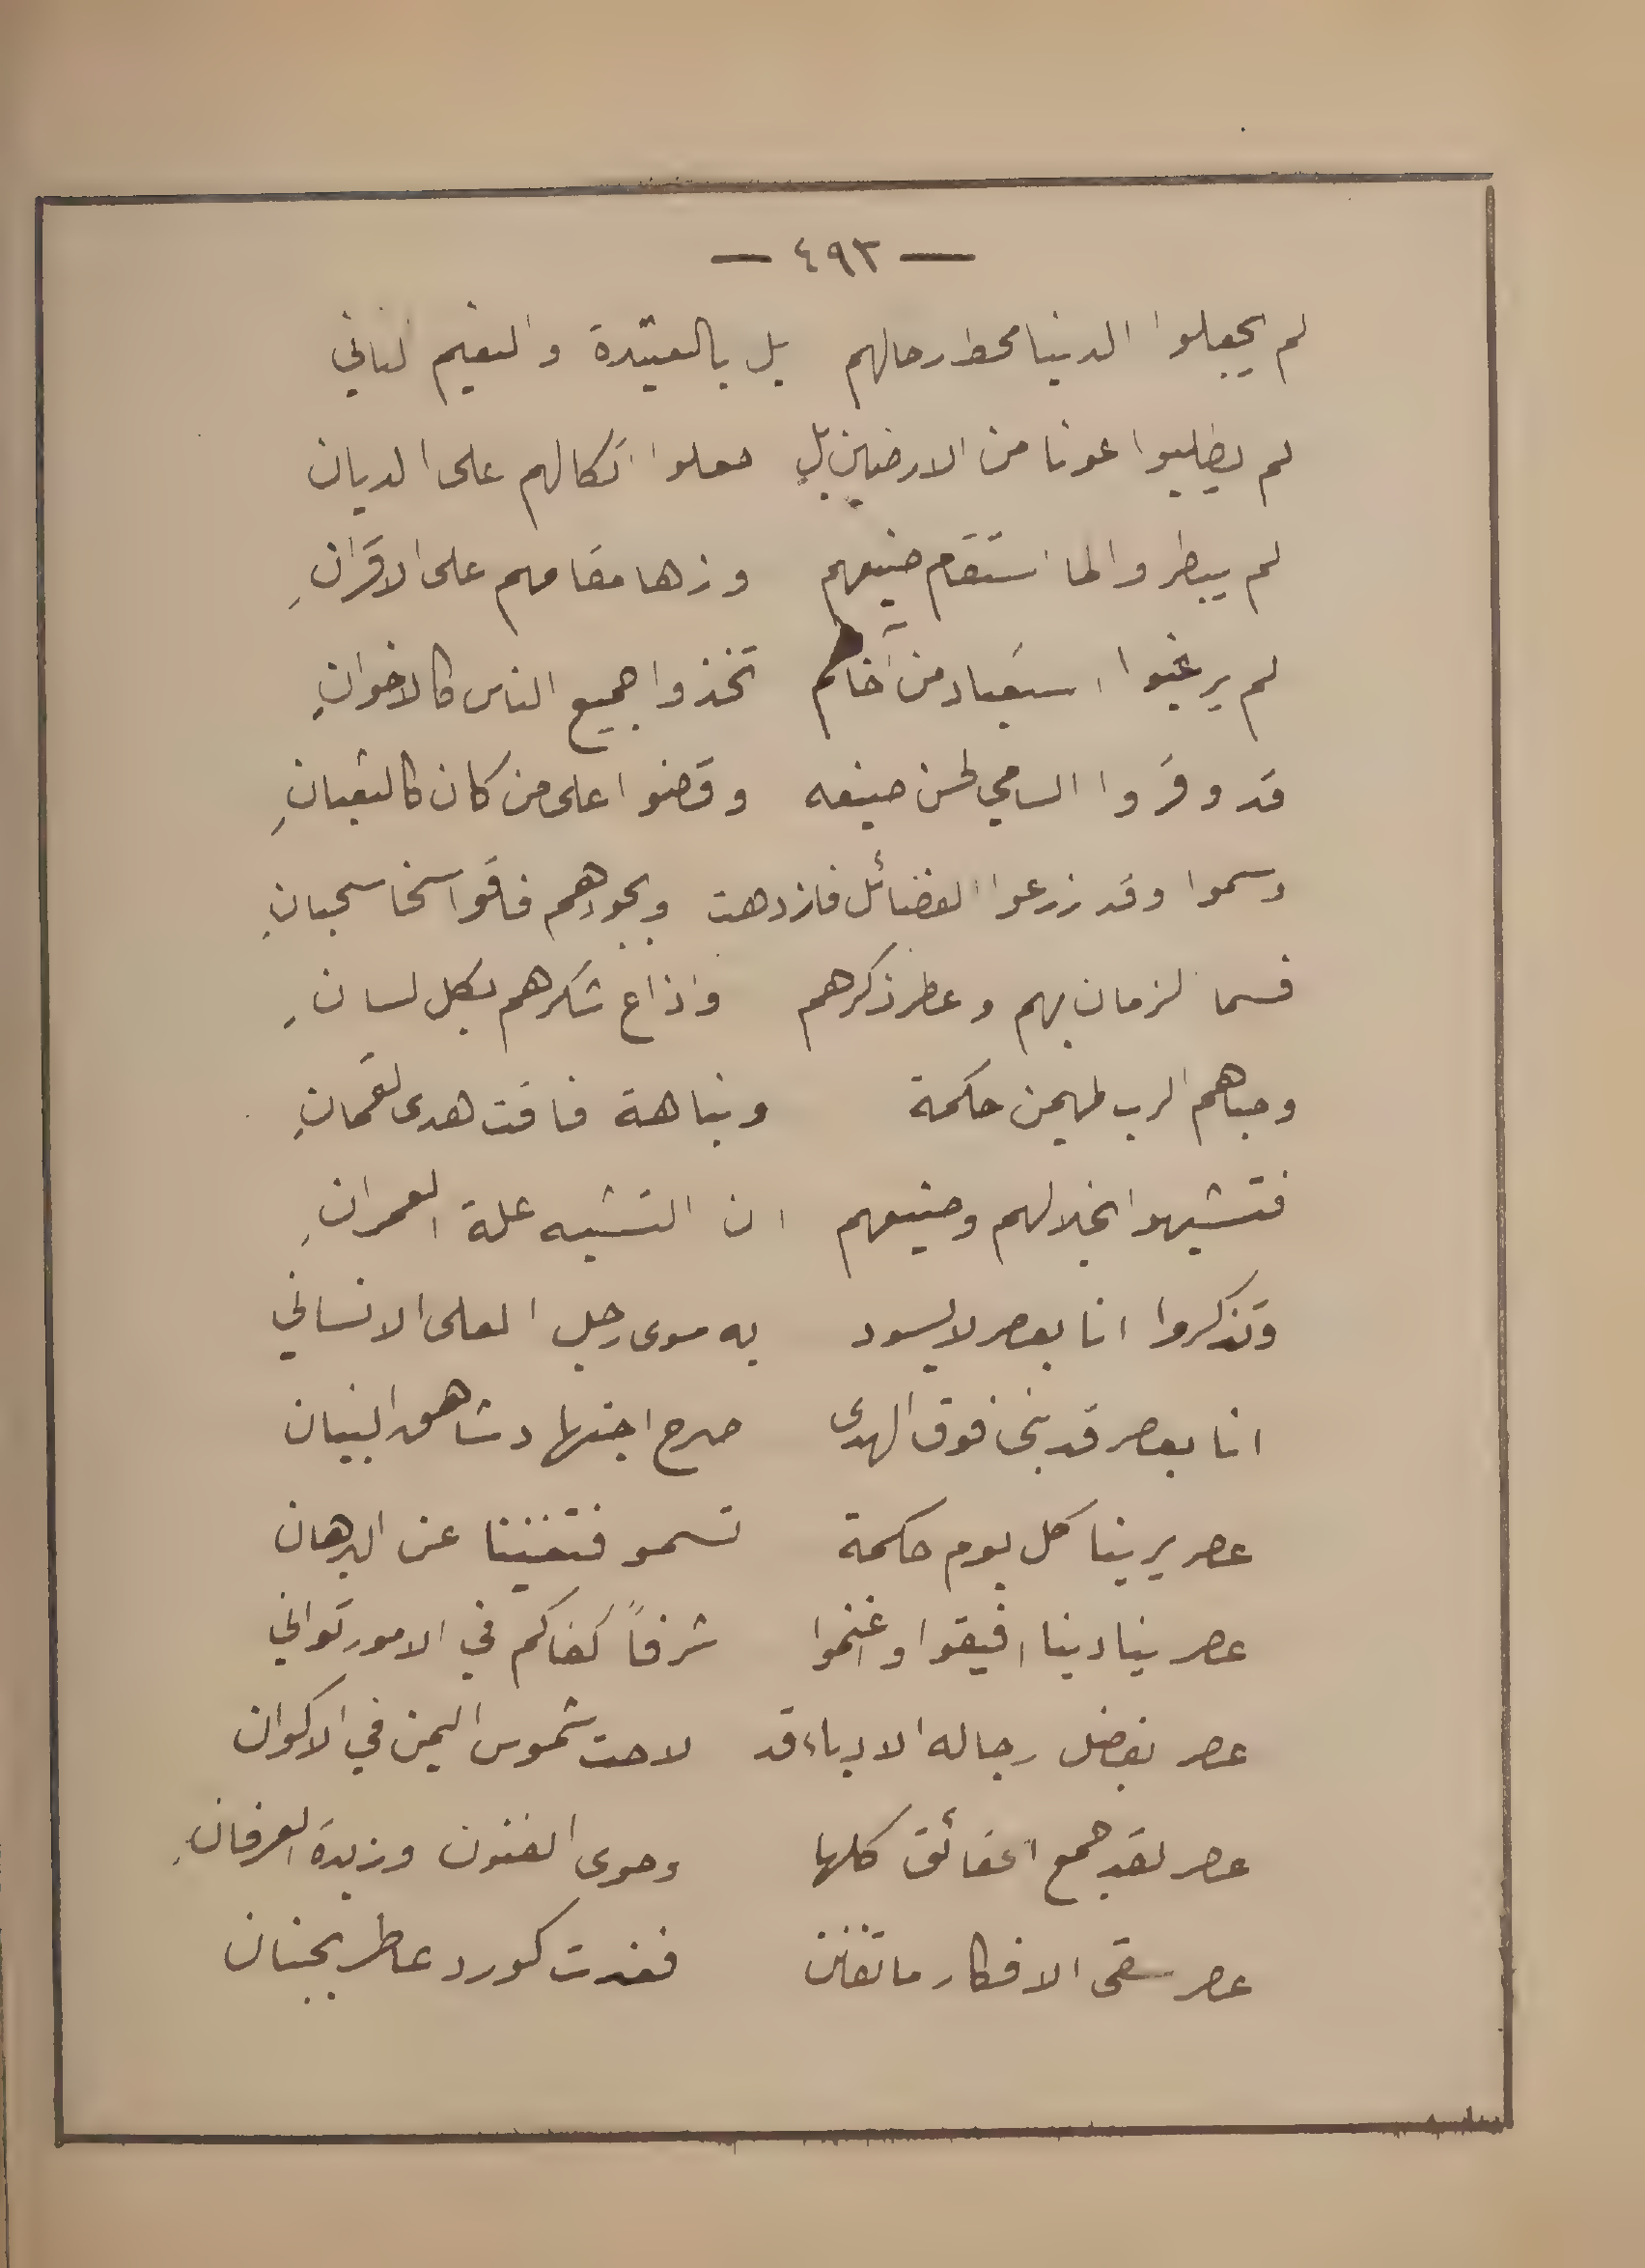 — ٤٩٣ —
لم يجعلوا الدنيا محط رحالهم بل بالعتيدة والنعيم الثاني
لم يطلبوا عونا من الارضين بل جعلوا اتكالهم على الديان
لم يبطروا لما استقام صنيعهم وزها مقامهم على الاقرانِ
لم يرغبوا استعباد من تخذوا جميع الناس كالاخوانِ
قد وقروا السامي لحسن صنيعه وقضوا على من كان كالثعبانِ
وسموا وقد زرعوا الفضائل فازدهت وبجودهم فاقوا سخا سحبانِ
فسما الزمان بهم وعطر ذكرهم واذاع شكرهم بكل لسانِ
وحباهم الرب المهيمن حكمة ونباهة فاقت هدى لقمانِ
فتشبهوا بخلالهم وصنيعهم ان التشبه علة العمرانِ
وتذكروا انا بعصر لا يسود به سوى رجل العلى الانساني
انا بعصر قد بنى فوق الهدى صرح اجتهاد شاهق البنيان
عصر يرينا كل يوم حكمة تسمو فتغنينا عن البرهان
عصر ينادينا افيقوا واغنموا شرفاً كفاكم في الامور تواني
عصر بفضل رجاله الادباء قد لاحت شموس اليمن في الاكوان
عصر لقد جمع الحقائق كلها وحوى الفنون وزبدة العرفانِ
عصر سقى الافكار ماء تفنن فغدت كورد عاطر بجنان